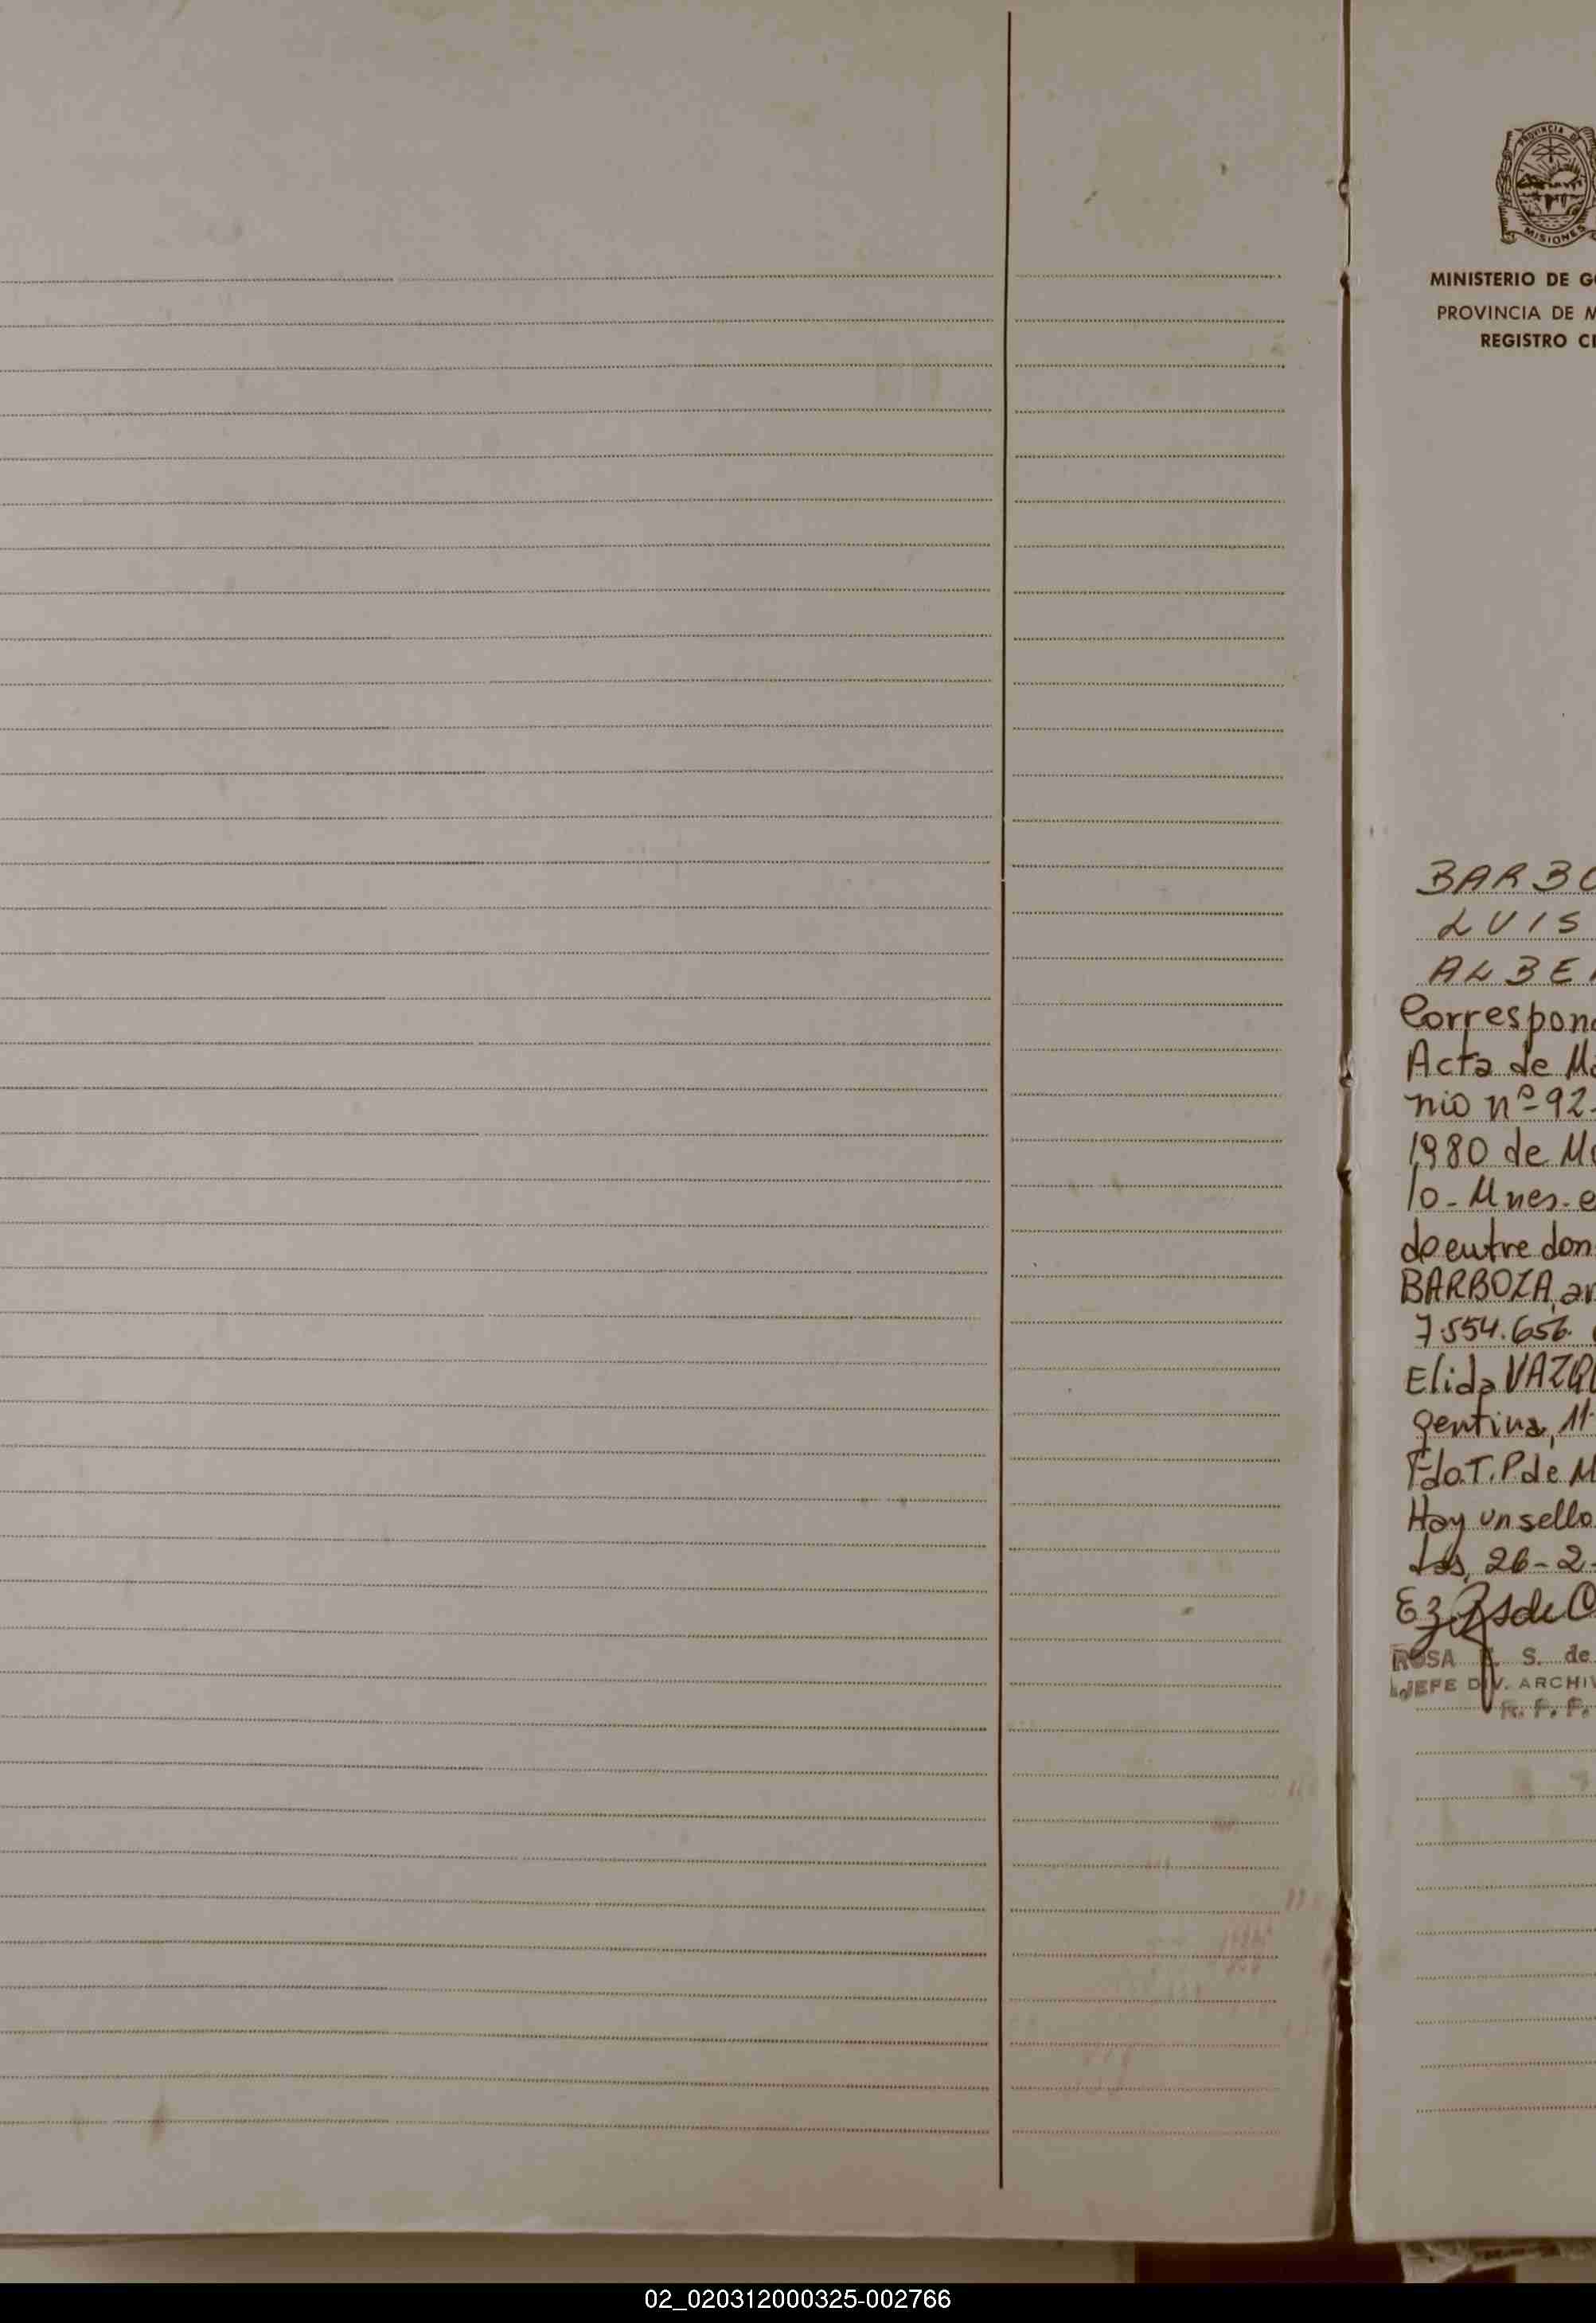 PROVINCIA DE
MISIONES
MINISTERIO DE G
PROVINCIA DE M
REGISTRO CI
BARBO
LUIS
ALBE
Correspon
Acta de Ma
nio nº 92-
1980 de Mo
lo - Mnes - e
do entre don
BARBOZA, ar
7.554.656.
Elida VAZQ
gentina, 11.
Fdo. T. P. de M
Hay un sello
26-2-
ROSA S. de
JEFE DIV. ARCHIV
R. F. F.
02_020312000325-002766